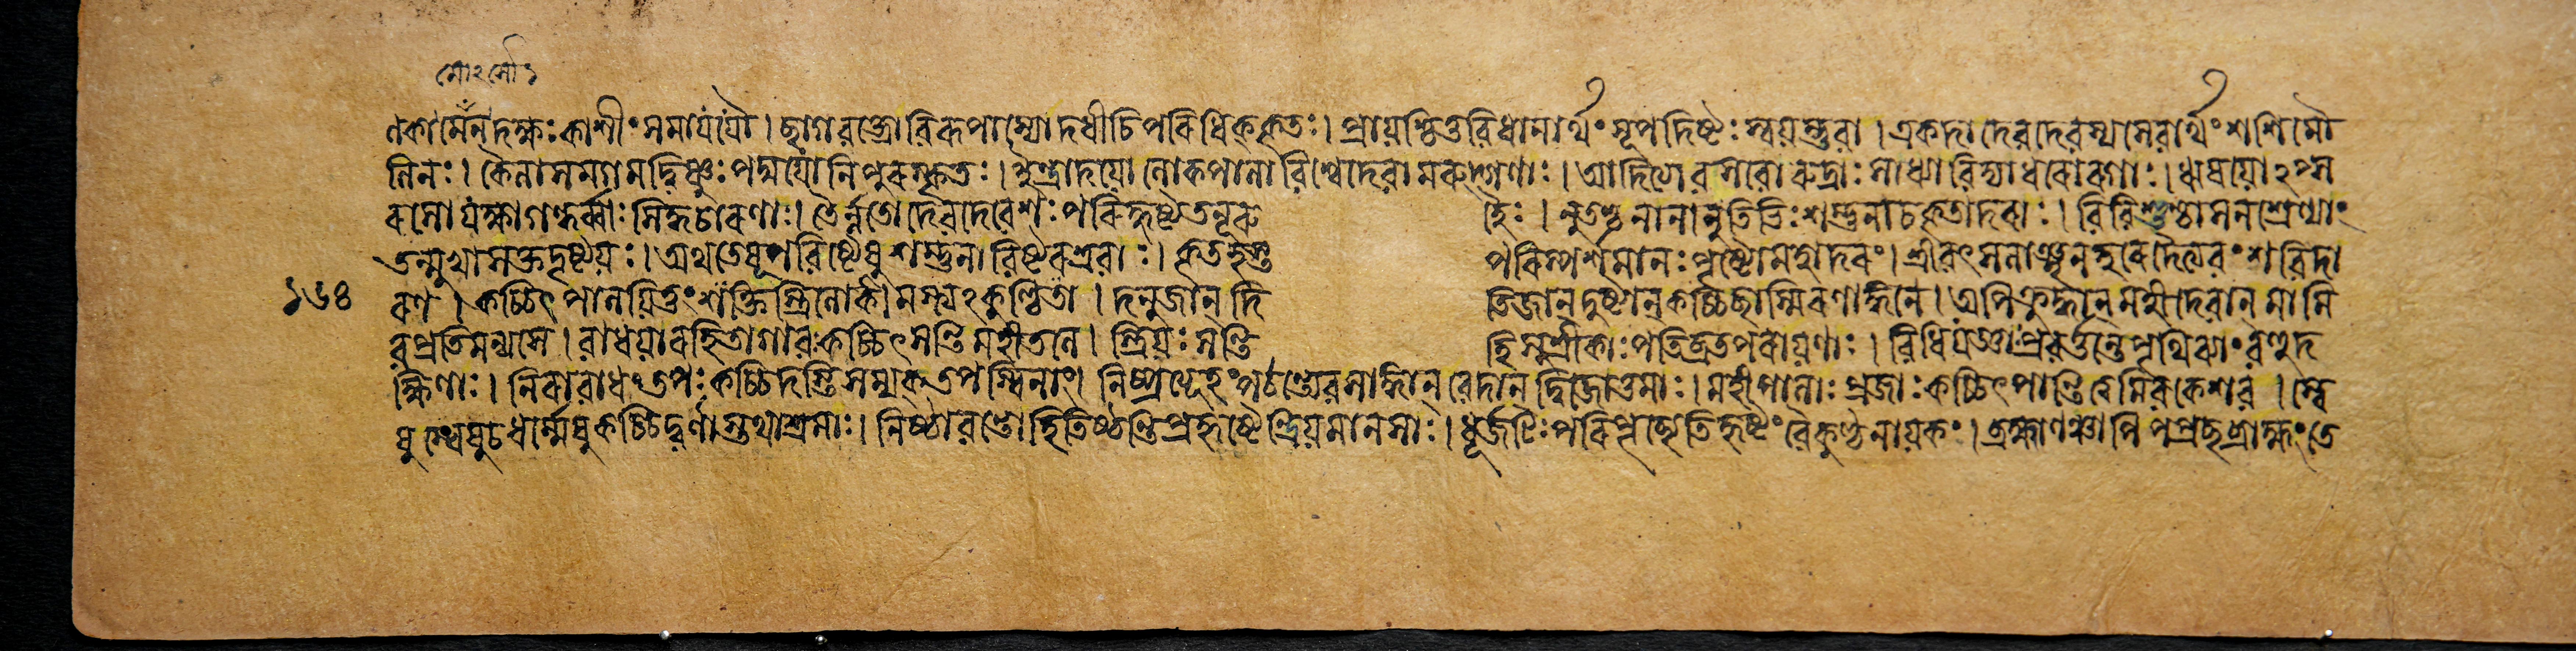 মো২র্মো১
ণকামোঁন দক্ষঃ কাশীং সমাযযৌ । ছাগবক্ত্রো বিরূপাস্যো দধীচিপরিধিক্কৃতঃ । প্রায়শ্চিত্তবিধানার্থং সূপদিষ্টঃ স্বয়ম্ভুবা । একদা দেবদেবস্য সেবার্থং শশিমৌ
লিনঃ । কৈলাসমগমদ্বিষ্ণুঃ পদ্মযোনিপুরস্কৃতঃ । ইন্দ্রাদয়ো লোকপালা বিশ্বেদেবা মরুদ্গণাঃ । আদিত্যা বসবো রুদ্রাঃ সাধ্যা বিদ্যাধরোরগাঃ । ঋষয়োঽপ্স
রসো যক্ষা গন্ধর্ব্বাঃ সিদ্ধচারণাঃ । তৈর্ন্নতো দেবদেবেশঃ পরিহৃষ্টতনূরু হৈঃ । স্তুতশ্চ নানাস্তুতিভিঃ শম্ভুনা চ কৃতাদরাঃ । বিবিশুশ্চাসনশ্রেণ্যাং
তন্মুখাসক্তদৃষ্টয়ঃ । অথ তেষূপবিষ্টেষু শম্ভুনা বিষ্টরশ্রবাঃ । কৃতহস্ত পরিস্পর্শমানঃ পৃষ্টো মহাদরং । শ্রীবৎসলাঞ্ছন হরে দৈত্যবংশদবিদা
১৬৪ রণ । কচ্চিৎ পালয়িতুং শক্তিস্ত্রিলোকীমস্ত্যঽকুণ্ঠিতা । দনুজান্ দি তিজান্ দুষ্টান্ কচ্চিচ্ছাস্সি রণাঙ্গনে । অপি ক্রুদ্ধান্ মহীদেবান্ মামি
ব প্রতিমন্যসে । বাধয়া রহিতা গাবঃ কচ্চিৎ সন্তি মহীতলে । স্ত্রিয়ঃ সন্তি হি সুশ্রীকাঃ পতিব্রতপরায়ণাঃ । বিধিযজ্ঞাঃ প্রবর্ত্তন্তে পৃথিব্যাং বহুদ
ক্ষিণাঃ । নিরাবাধং তপঃ কচ্চিদস্তি সম্যক্ তপস্বিনাং । নিষ্প্রত্যূহং পঠন্ত্যেব সাঙ্গান্ বেদান্ দ্বিজোত্তমাঃ । মহীপালাঃ প্রজাঃ কচ্চিৎ পান্তি ত্বমিব কেশব । স্বে
ষু স্বেষু চ ধর্ম্মেষু কচ্চিদ্বর্ণাস্তথাশ্রমাঃ । নিষ্ঠাবন্তো হি তিষ্ঠন্তি প্রহৃষ্টেন্দ্রিয়মানসাঃ । ধূর্জটিঃ পরিপৃচ্ছ্যেতি হৃষ্টং বৈকুণ্ঠনায়কং । ব্রহ্মাণঞ্চাপি পপ্রচ্ছ ব্রাহ্মং তে